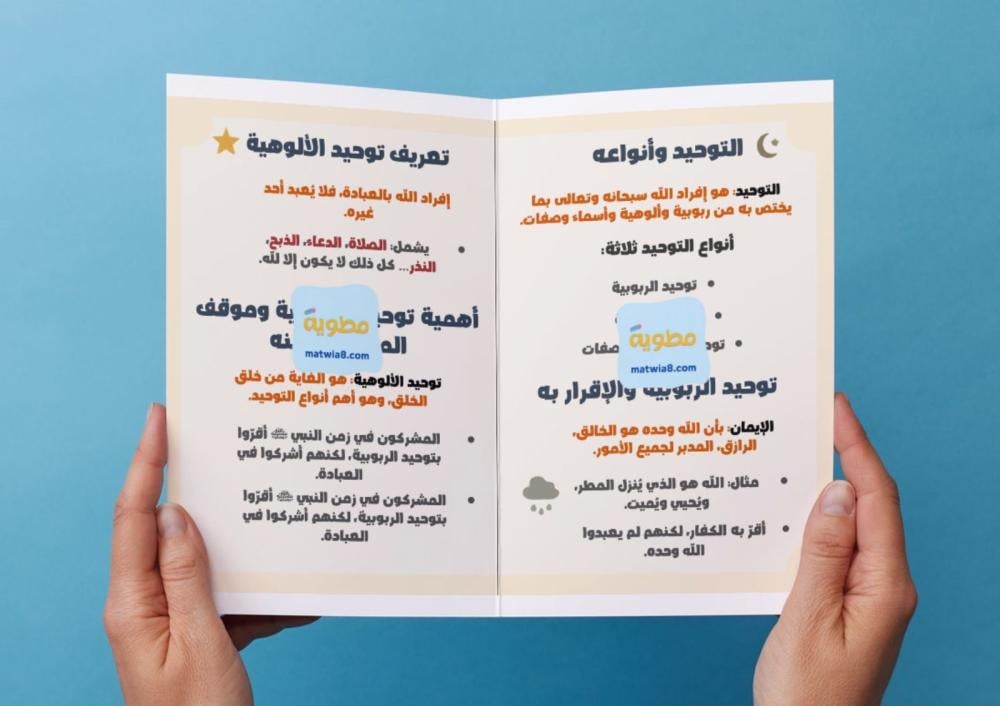 التوحيد وأنواعه
التوحيد: هو إفراد الله سبحانه وتعالى بما
يختص به من ربوبية وألوهية وأسماء وصفات.
أنواع التوحيد ثلاثة:
توحيد الربوبية
مطوية
matwia8.com
توحيد الربوبية والإقرار به
الإيمان: بأن الله وحده هو الخالق،
الرازق، المدبر لجميع الأمور.
مثال: الله هو الذي يُنزل المطر،
ويُحيي ويُميت.
أقرّ به الكفار، لكنهم لم يعبدوا
الله وحده.
تعريف توحيد الألوهية
إفراد الله بالعبادة، فلا يُعبد أحد
غيره.
يشمل: الصلاة، الدعاء، الذبح،
النذر... كل ذلك لا يكون إلا لله.
أهمية وموقف
مطوية
matwia8.com
توحيد الألوهية: هو الغاية من خلق
الخلق، وهو أهم أنواع التوحيد.
المشركون في زمن النبي ﷺ أقرّوا
بتوحيد الربوبية، لكنهم أشركوا في
العبادة.
المشركون في زمن النبي ﷺ أقرّوا
بتوحيد الربوبية، لكنهم أشركوا في
العبادة.